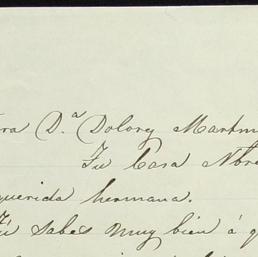 ra D.ª Dolores Martin
Tu Casa Nbre
querida hermana.
Tú sabes muy bien á q